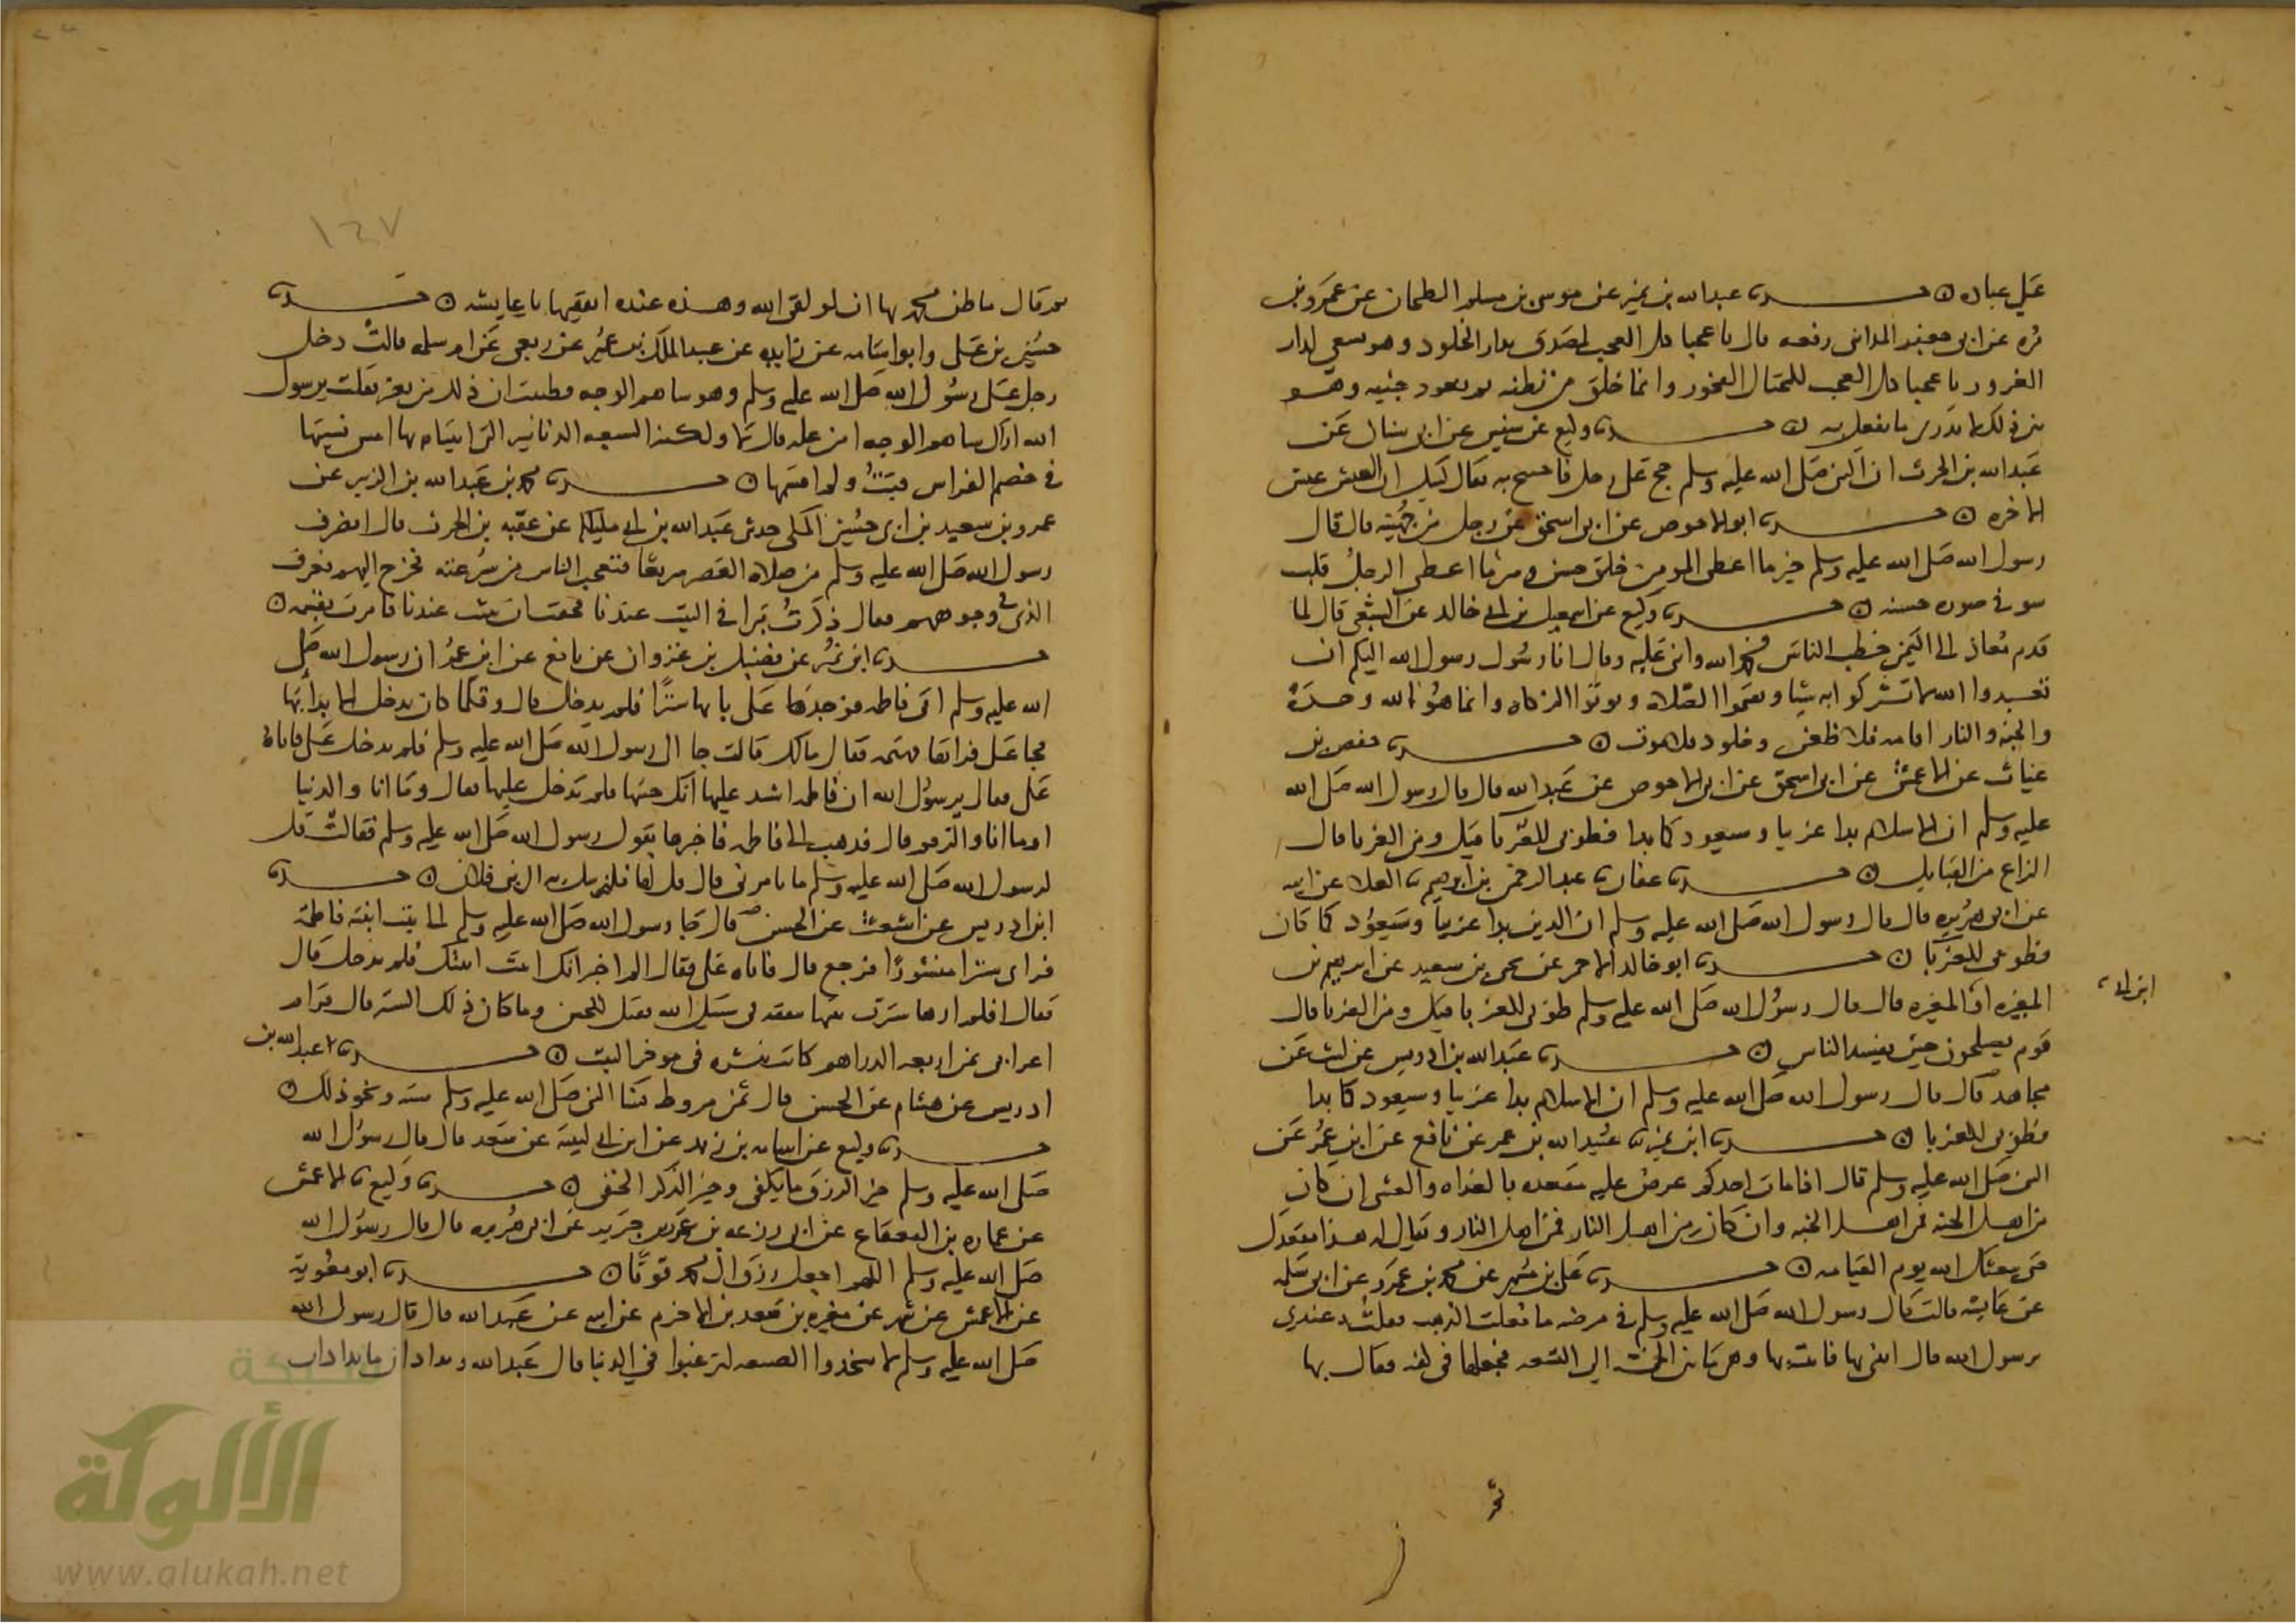 علي عباده ○ حدثنا عبد الله بن نمير عن موسى بن مسلم الطحان عن عمرو بن
مره عن ابي جعفر المدايني رفعه قال يا عجبا كل العجب لمصدق بدار الخلود وهو يسعى لدار
الغرور يا عجبا كل العجب للمختال الفخور وانما خلق من نطفه ثم يعود جيفه وهو
بين ذلك لا يدري ما يفعل به ○ حدثنا وكيع عن سفين عن ابي سنان عن
عبد الله بن الحرث ان النبي صلى الله عليه وسلم حج على رحل فاجتنح به فقال لبيك ان العيش عيش
الاخره ○ حدثنا ابو الاحوص عن ابي اسحق عن رجل من جهينه قال قال
رسول الله صلى الله عليه وسلم خير ما اعطي المومن خلق حسن وشر ما اعطي الرجل قلب
سو في صوره حسنه ○ حدثنا وكيع عن اسمعيل بن ابي خالد عن الشعبي قال لما
قدم معاذ الى اليمن خطب الناس فحمد الله واثنى عليه وقال انا رسول رسول الله اليكم ان
تعبدوا الله لا تشركوا به شيا وتقيموا الصلاه وتوتوا الزكاه وانما هو الله وحده
والجنه والنار اقامه فلا ظعن وخلود فلا موت ○ حدثنا حفص بن
غياث عن الاعمش عن ابي اسحق عن ابي الاحوص عن عبد الله قال قال رسول الله صلى الله
عليه وسلم ان الاسلام بدا غريبا وسيعود كما بدا فطوبى للغربا قيل ومن الغربا قال
النزاع من القبايل ○ حدثنا عفان ثنا عبد الرحمن بن ابرهيم ثنا العلا عن ابيه
عن ابي هريره قال قال رسول الله صلى الله عليه وسلم ان الدين بدا غريبا وسيعود كما كان
فطوبى للغربا ○ حدثنا ابو خالد الاحمر عن يحيى بن سعيد عن ابرهيم بن
المغيره او ابن ابي المغيره قال قال رسول الله صلى الله عليه وسلم طوبى للغربا قيل ومن الغربا قال
قوم يصلحون حين يفسد الناس ○ حدثنا عبد الله بن ادريس عن ليث عن
مجاهد قال قال رسول الله صلى الله عليه وسلم ان الاسلام بدا غريبا وسيعود كما بدا
فطوبى للغربا ○ حدثنا ابن نمير ثنا عبيد الله بن عمر عن نافع عن ابن عمر عن
النبي صلى الله عليه وسلم قال اذا مات احدكم عرض عليه مقعده بالغداه والعشي ان كان
من اهل الجنه فمن اهل الجنه وان كان من اهل النار فمن اهل النار ويقال له هذا مقعدك
حتى يبعثك الله يوم القيامه ○ حدثنا علي بن مسهر عن محمد بن عمرو عن ابي سلمه
عن عايشه قالت قال رسول الله صلى الله عليه وسلم في مرضه ما فعلت الذهب فقلت عندي
يرسول الله قال ايتني بها فاتيته بها وهي ما بين الخمسه الى السبعه فجعلها في كفه فقال بها
ثم قال ما ظن محمد بها ان لو لقي الله وهذه عنده انفقيها يا عايشه ○ حدثنا
حسين بن علي وابو اسامه عن زايده عن عبد الملك بن عمير عن ربعي عن ام سلمه قالت دخل
رجل علي رسول الله صلى الله عليه وسلم وهو ساهم الوجه فظننت ان ذلك من تغير فقلت يرسول
الله اراك ساهم الوجه امن عله قال لا ولكنه السبعه الدنانير التي اتينا بها امس نسيتها
في خصم الفراش فبت ولم اقسمها ○ حدثنا محمد بن عبد الله بن الزبير عن
عمرو بن سعيد بن ابي حسين المكي حدثني عبد الله بن ابي مليكه عن عقبه بن الحرث قال انصرف
رسول الله صلى الله عليه وسلم من صلاه العصر سريعا فتعجب الناس من سرعته فخرج اليهم فعرف
الذي في وجوههم فقال ذكرت تبرا في البيت عندنا فخفت ان يبيت عندنا فامرت بقسمه ○
حدثنا ابن نمير عن فضيل بن غزوان عن نافع عن ابن عمر ان رسول الله صلى
الله عليه وسلم اتى فاطمه فوجد على بابها سترا فلم يدخل قال وقلما كان يدخل الا بدا بها
فجا علي فراها مهتمه فقال مالك قالت جا الي رسول الله صلى الله عليه وسلم فلم يدخل علي فاتاه
علي فقال يرسول الله ان فاطمه اشتد عليها انك جيتها فلم تدخل عليها فقال وما انا والدنيا
او ما انا والرقم قال فذهب الى فاطمه فاخبرها بقول رسول الله صلى الله عليه وسلم فقالت قل
لرسول الله صلى الله عليه وسلم ما تامرني قال قل لها فلترسل به الى بني فلان ○ حدثنا
ابن ادريس عن اشعث عن الحسن قال جا رسول الله صلى الله عليه وسلم الى بيت ابنته فاطمه
فراى سترا منشورا فرجع قال فاتاه علي فقال الم اخبر انك اتيت ابنتك فلم تدخل قال
فقال افلم ارها سترت بيتها بنفقه في سبيل الله فقيل للحسن وما كان ذلك الستر قال قرام
اعرابي ثمن اربعه الدراهم كانت تنشره في موخر البيت ○ حدثنا عبد الله بن
ادريس عن هشام عن الحسن قال ثمن مروط نسا النبي صلى الله عليه وسلم سته ونحو ذلك ○
حدثنا وكيع عن اسامه بن زيد عن ابن ابي لبيبه عن سعد قال قال رسول الله
صلى الله عليه وسلم خير الرزق ما يكفي وخير الذكر الخفي ○ حدثنا وكيع ثنا الاعمش
عن عماره بن القعقاع عن ابي زرعه بن عمرو بن جرير عن ابي هريره قال قال رسول الله
صلى الله عليه وسلم اللهم اجعل رزق ال محمد قوتا ○ حدثنا ابو معويه
عن الاعمش عن شمر عن مغيره بن سعد بن الاخرم عن ابيه عن عبد الله قال قال رسول الله
صلى الله عليه وسلم لا تتخذوا الضيعه لترغبوا في الدنيا قال عبد الله وبراذان ما براذان
١٤٧
شبكة
الألوكة
www.alukah.net